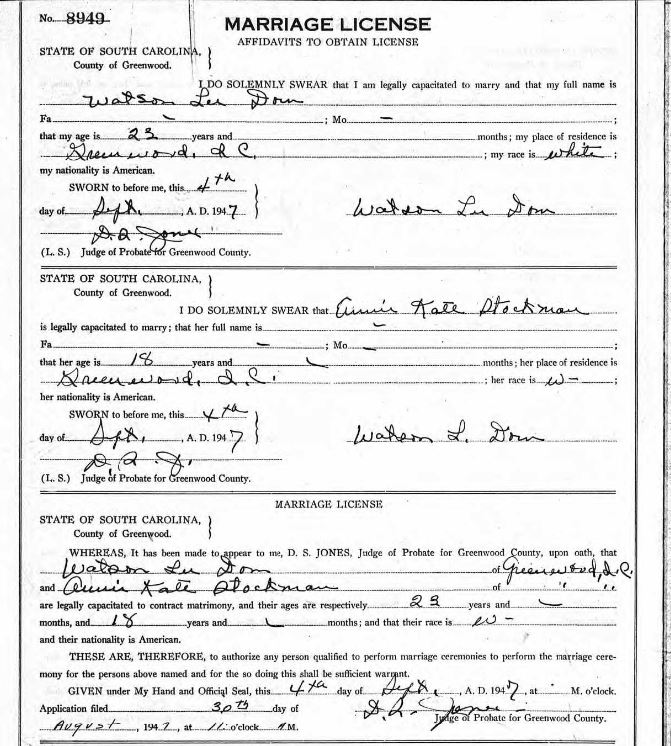 No. 8949
MARRIAGE LICENSE
AFFIDAVITS TO OBTAIN LICENSE
STATE OF SOUTH CAROLINA, }
County of Greenwood.
I DO SOLEMNLY SWEAR that I am legally capacitated to marry and that my full name is
Watson Lee Dorn
Fa - ; Mo - ;
that my age is 23 years and months; my place of residence is
Greenwood, S.C. ; my race is white ;
my nationality is American.
SWORN to before me, this 4th
day of Sept. , A. D. 1947 } Watson Lee Dorn
D.S. Jones
(L. S.) Judge of Probate for Greenwood County.
STATE OF SOUTH CAROLINA, }
County of Greenwood.
I DO SOLEMNLY SWEAR that Annie Kate Stockman
is legally capacitated to marry; that her full name is -
Fa - ; Mo - ;
that her age is 18 years and months; her place of residence is
Greenwood, S.C. ; her race is w- ;
her nationality is American.
SWORN to before me, this 4th
day of Sept. , A. D. 1947 } Watson L. Dorn
D. S. J.
(L. S.) Judge of Probate for Greenwood County.
MARRIAGE LICENSE
STATE OF SOUTH CAROLINA, }
County of Greenwood.
WHEREAS, It has been made to appear to me, D. S. JONES, Judge of Probate for Greenwood County, upon oath, that
Watson Lee Dorn of Greenwood, S.C.
and Annie Kate Stockman of " "
are legally capacitated to contract matrimony, and their ages are respectively 23 years and -
months, and 18 years and - months; and that their race is w-
and their nationality is American.
THESE ARE, THEREFORE, to authorize any person qualified to perform marriage ceremonies to perform the marriage cere-
mony for the persons above named and for the so doing this shall be sufficient warrant.
GIVEN under My Hand and Official Seal, this 4th day of Sept. , A. D. 1947, at M. o'clock.
Application filed 30th day of D.S. Jones
August , 1947, at 11 o'clock A.M. Judge of Probate for Greenwood County.